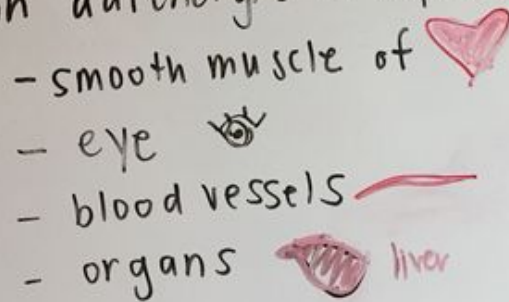 - smooth muscle of
- eye
- blood vessels
- organs liver